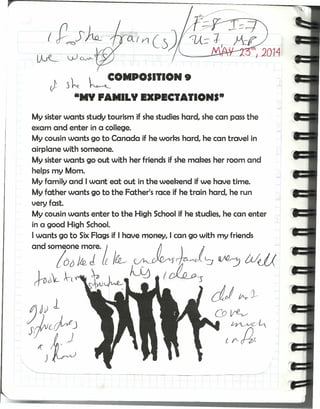 if she train(s)
F=8 I=7
U=7 M=8
we wants
MAY 23th, 2014
if she have
COMPOSITION 9
"MY FAMILY EXPECTATIONS"
My sister wants study tourism if she studies hard, she can pass the
exam and enter in a college.
My cousin wants go to Canada if he works hard, he can travel in
airplane with someone.
My sister wants go out with her friends if she makes her room and
helps my Mom.
My family and I want eat out in the weekend if we have time.
My father wants go to the Father's race if he train hard, he run
very fast.
My cousin wants enter to the High School if he studies, he can enter
in a good High School.
I wants go to Six Flags if I have money, I can go with my friends
and someone more.
looked like understanding very well
took time to his ideas
did not
cover
much
info